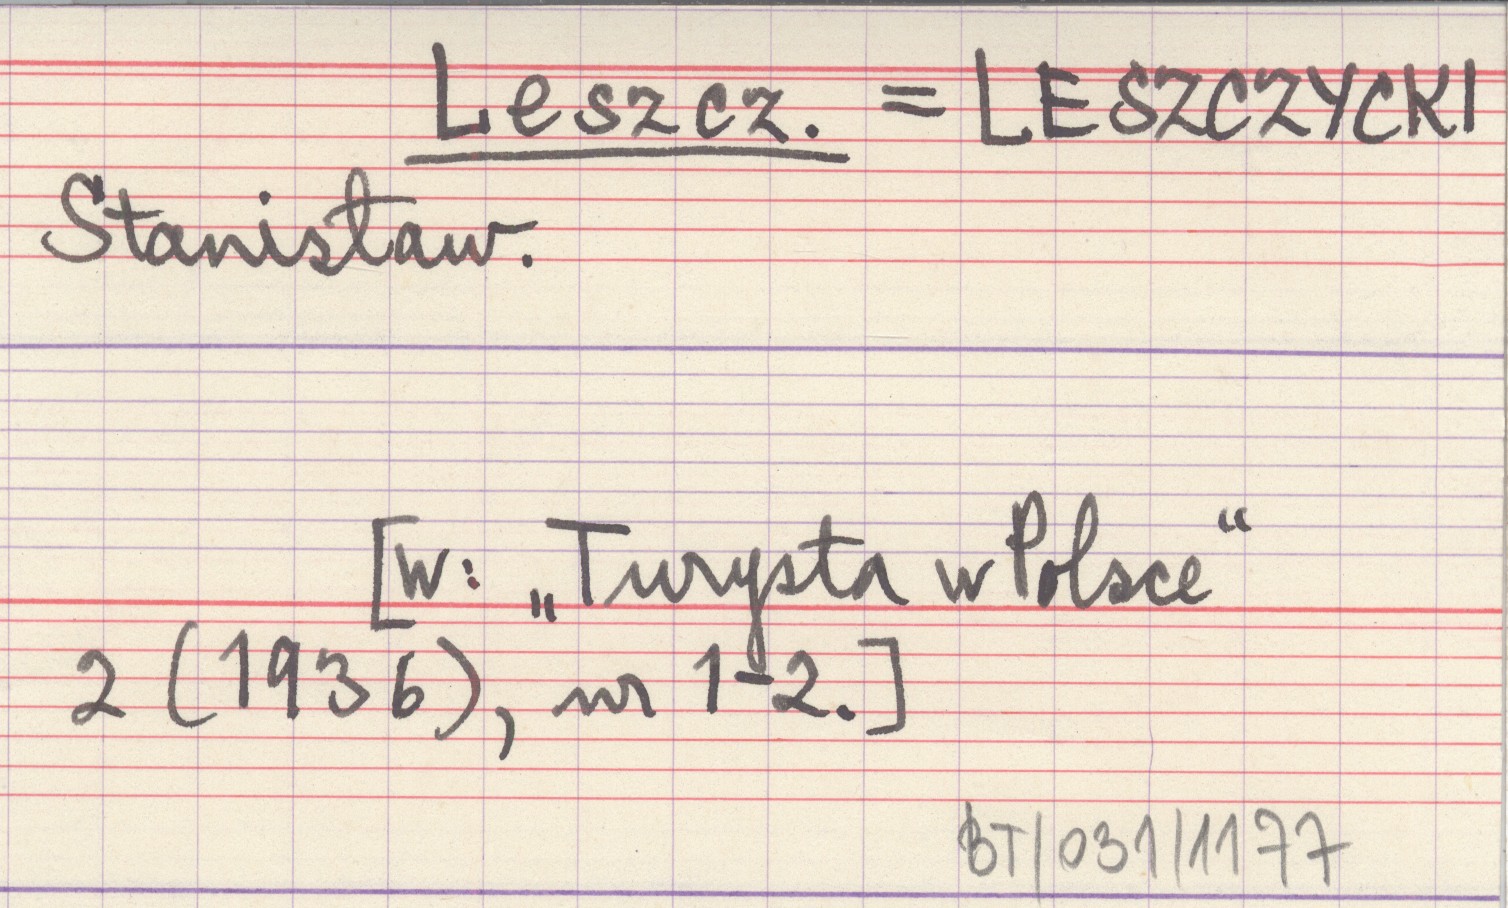 Leszcz. = LESZCZYCKI
Stanisław.
[w: „Turysta w Polsce“
2 (1936), nr 1-2.]
BT/031/1177